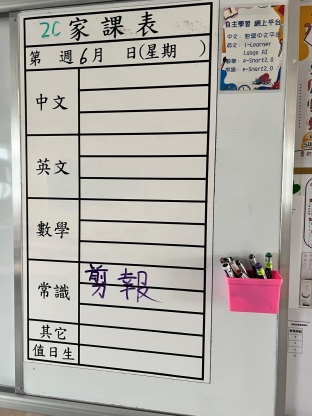 2C 家課表
第 週 6月 日(星期 )
中文
英文
數學
常識 剪報
其它
值日生
自主學習 網上平台
英文: i-Learner
Lango AI
數學: e-Smart2.0
常識: e-Smart2.0